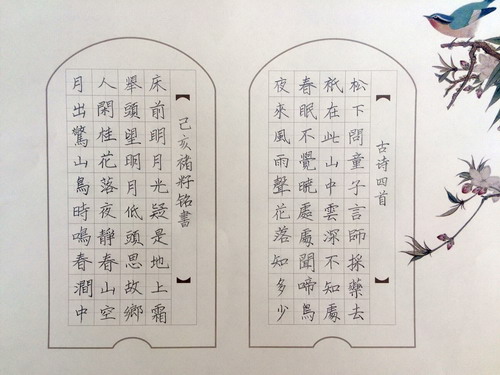 古诗四首
松下問童子言師採藥去
秖在此山中雲深不知處
春眠不覺曉處處聞啼鳥
夜來風雨聲花落知多少
己亥褚籽铭書
床前明月光疑是地上霜
舉頭望明月低頭思故鄉
人閑桂花落夜靜春山空
月出驚山鳥時鳴春澗中